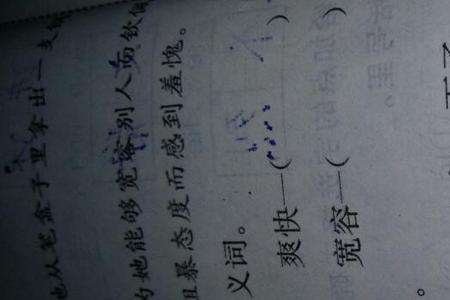 从笔盒子里拿出一支
她能够宽容别人而钦
暴态度而感到羞愧。
义词。
爽快—( )
宽容—( )